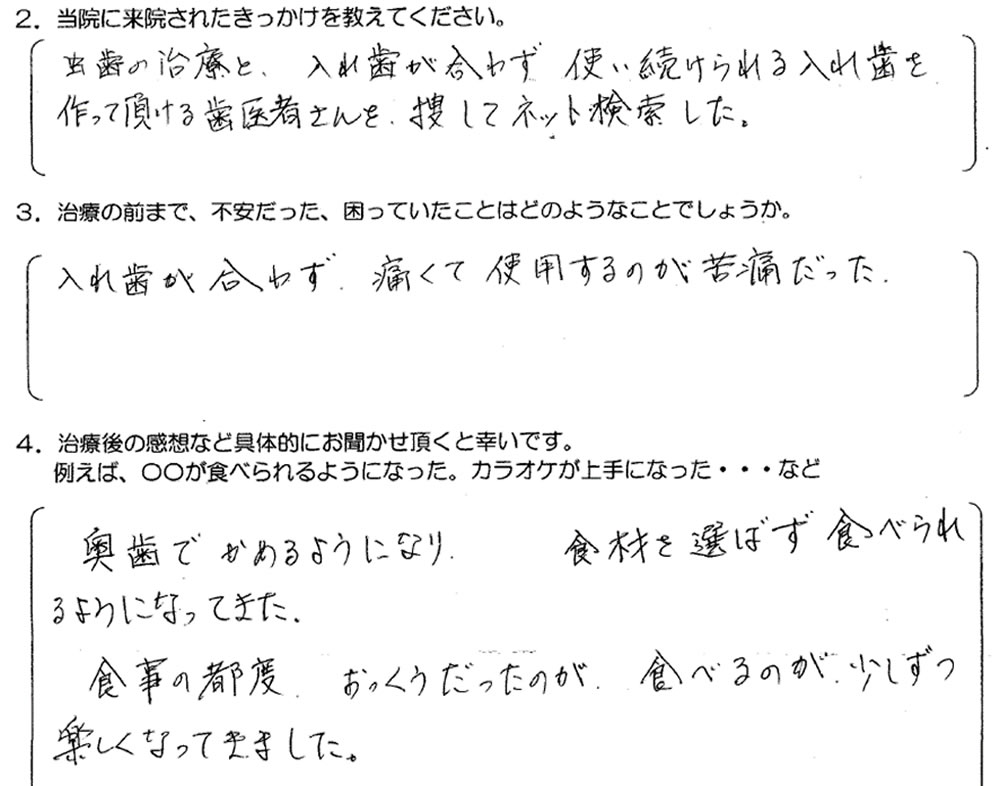 2．当院に来院されたきっかけを教えてください。
虫歯の治療と、入れ歯が合わず 使い続けられる入れ歯を
作って頂ける歯医者さんを、捜してネット検索した。
3．治療の前まで、不安だった、困っていたことはどのようなことでしょうか。
入れ歯が合わず、痛くて使用するのが苦痛だった．
4．治療後の感想など具体的にお聞かせ頂くと幸いです。
例えば、〇〇が食べられるようになった。カラオケが上手になった・・・など
奥歯でかめるようになり、 食材を選ばず食べられ
るようになってきた．
食事の都度、おっくうだったのが、食べるのが、少しずつ
楽しくなってきました。